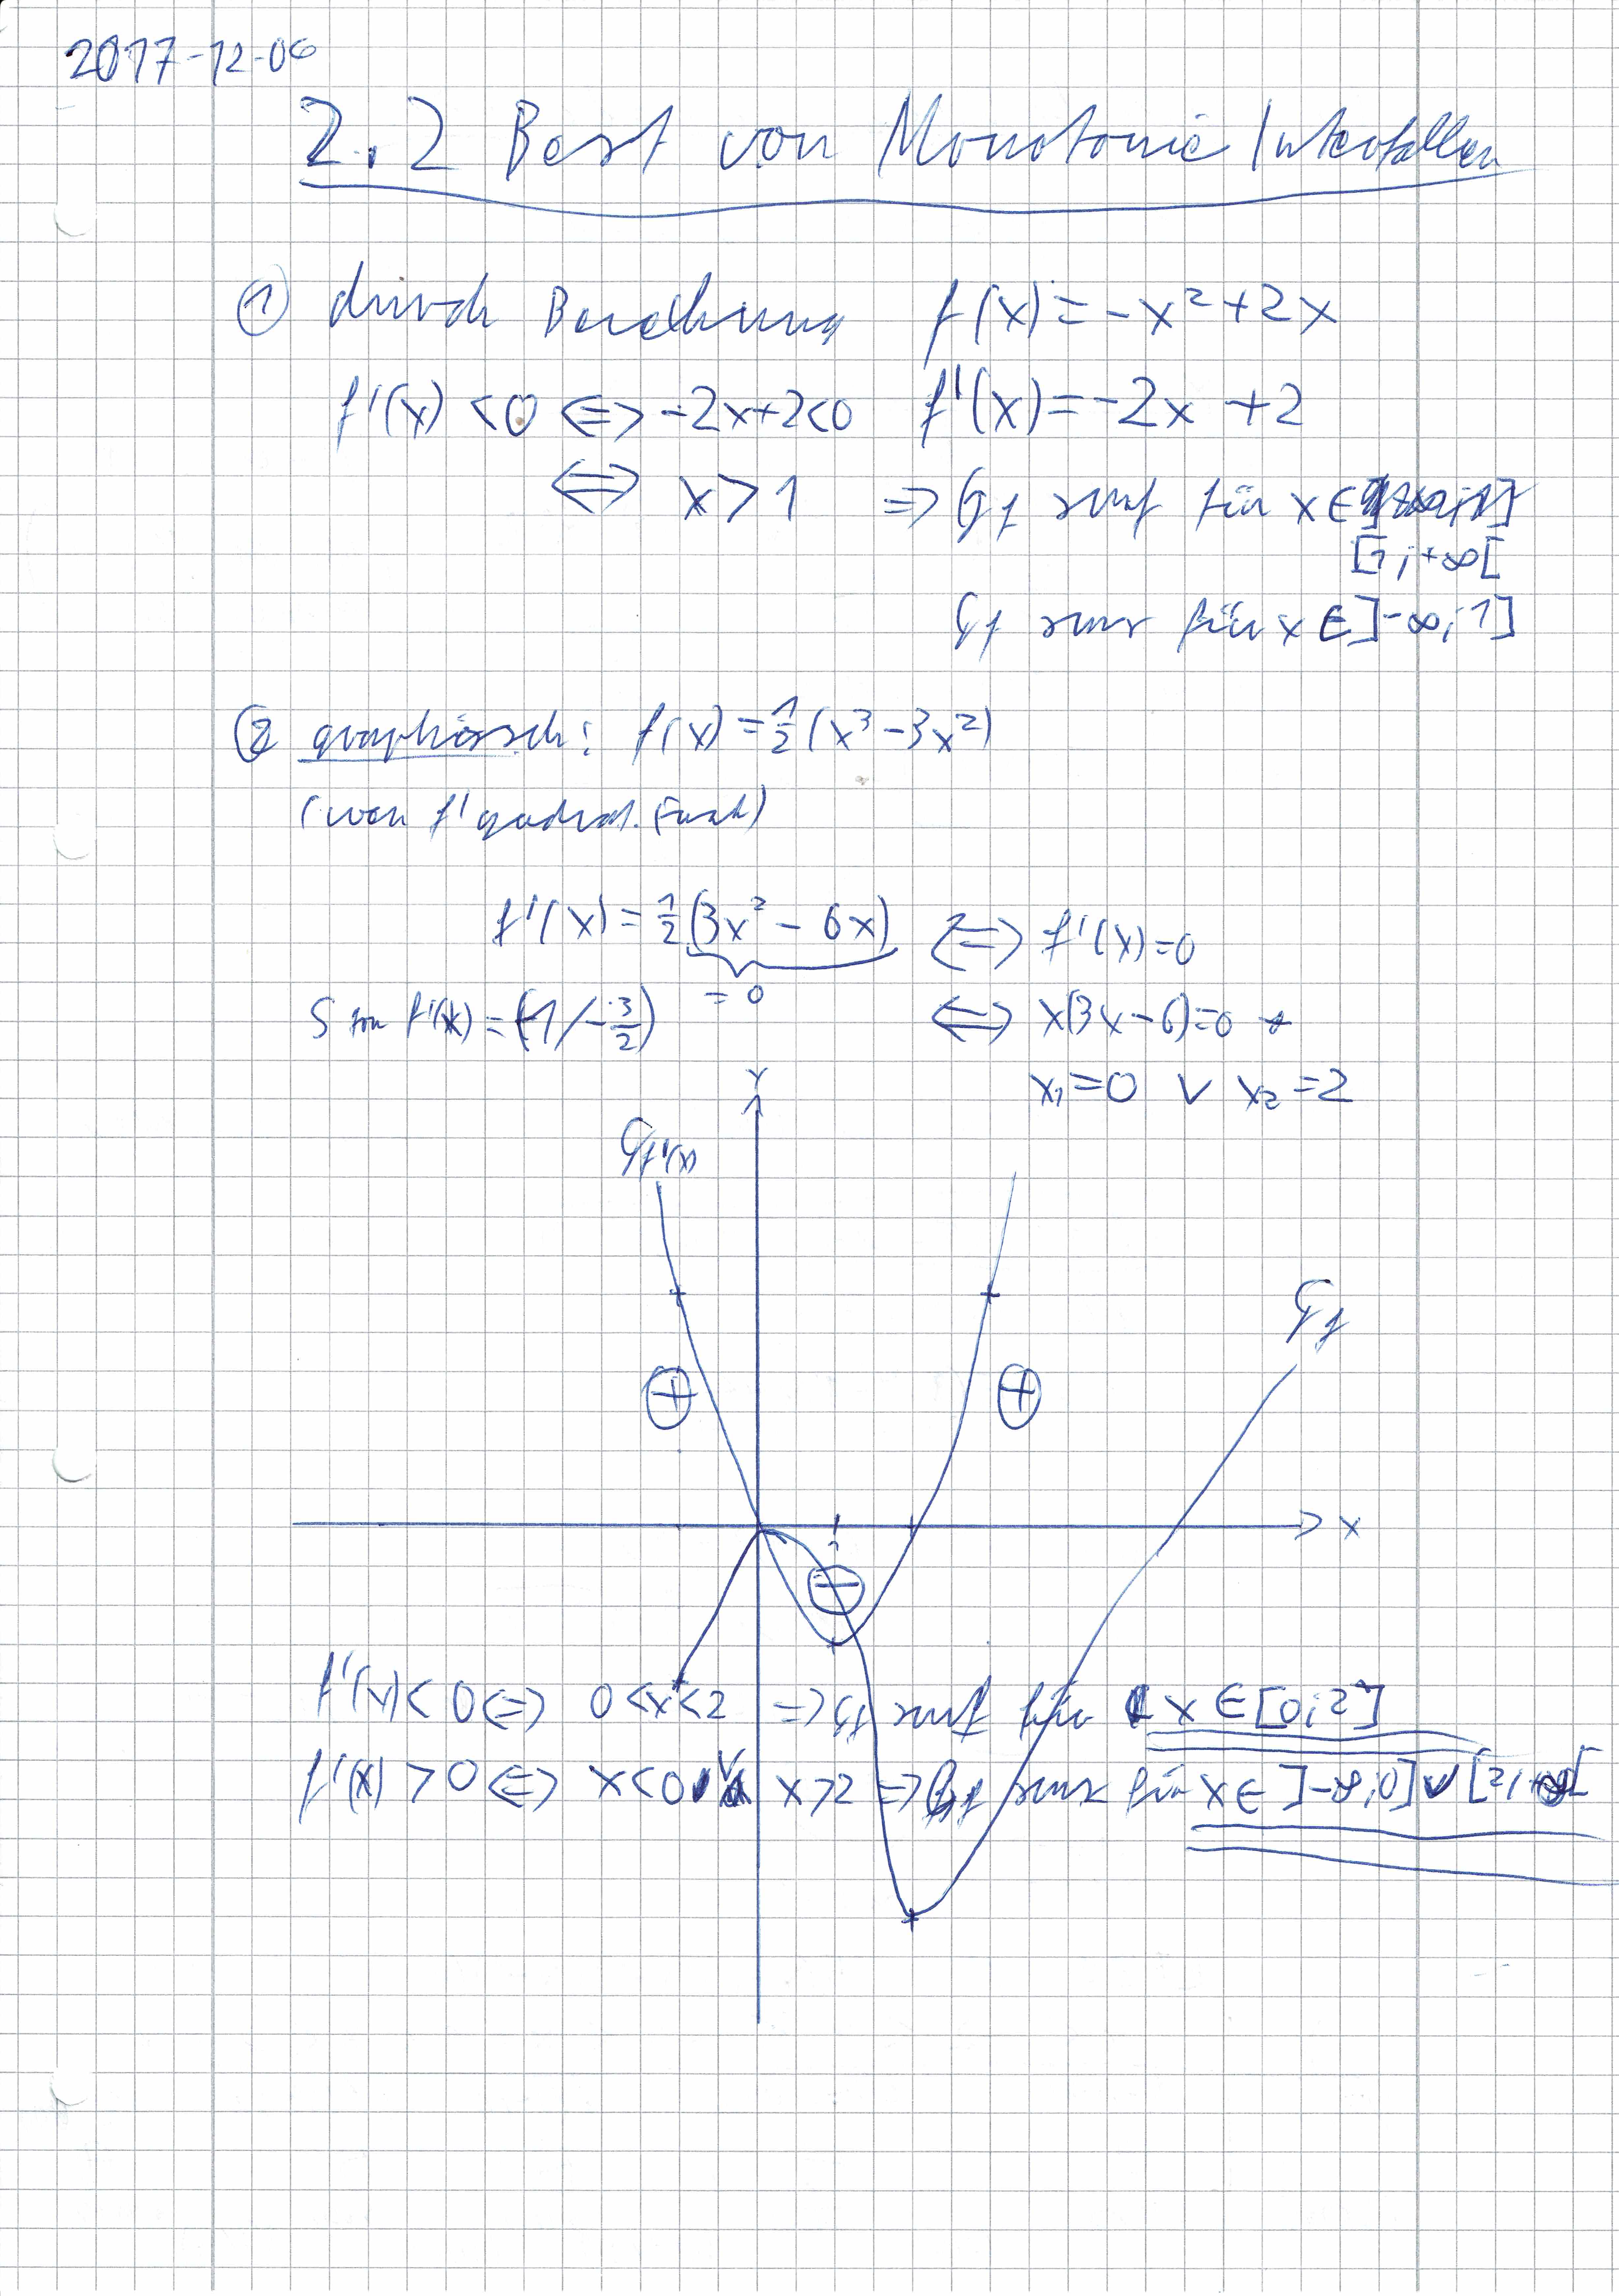 2017-12-06
2.2 Best von Monotonie Intervallen
① durch Berechnung f(x) = -x² + 2x
f'(x) < 0 <=> -2x+2<0 f'(x) = -2x + 2
<=> x > 1 => Gf smf für x ∈
[1; +∞[
Gf sms für x ∈ ]-∞; 1]
② graphisch: f(x) = 1/2 (x³ - 3x²)
(wenn f' quadrat. Funk)
f'(x) = 1/2 (3x² - 6x) <=> f'(x) = 0
= 0
S von f'(x) = (1/-3/2) <=> x(3x-6)=0
x₁ = 0 ∨ x₂ = 2
Y
Gf'(x)
Gf
+ +
x
-
f'(x) < 0 <=> 0 < x < 2 => Gf smf für x ∈ [0; 2]
f'(x) > 0 <=> x < 0 ∨ x > 2 => Gf sms für x ∈ ]-∞; 0] ∨ [2; +∞[